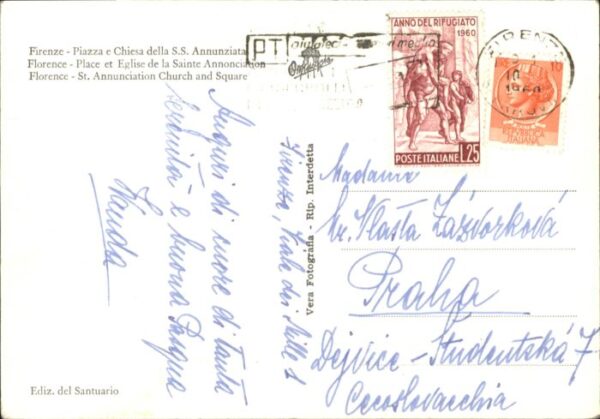 Firenze - Piazza e Chiesa della S.S. Annunziata
Florence - Place et Eglise de la Sainte Annonciation
Florence - St. Annunciation Church and Square
PT
ANNO DEL RIFUGIATO
1960
POSTE ITALIANE L.25
FIRENZE
10
1960
REPVBBLICA
ITALIANA
Auguri di cuore di tanta
serenità e buona Pasqua
Vanda
Firenze, Viale dei Mille 1
Vera Fotografia - Rip. Interdetta
Madame
Vlasta Zázvorková
Praha
Dejvice - Studentská 7
Cecoslovacchia
Ediz. del Santuario